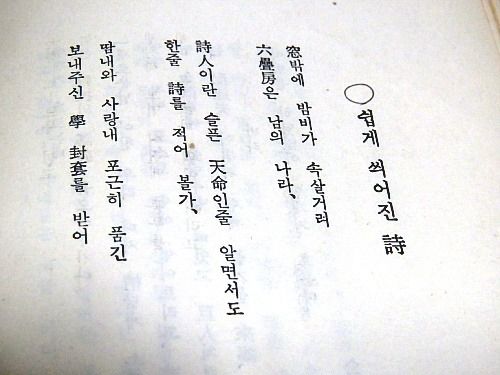 ○쉽게 씌어진 詩
窓밖에 밤비가 속살거려
六疊房은 남의 나라、
詩人이란 슬픈 天命인줄 알면서도
한줄 詩를 적어 볼가、
땀내와 사랑내 포근히 품긴
보내주신 學 封套를 받어